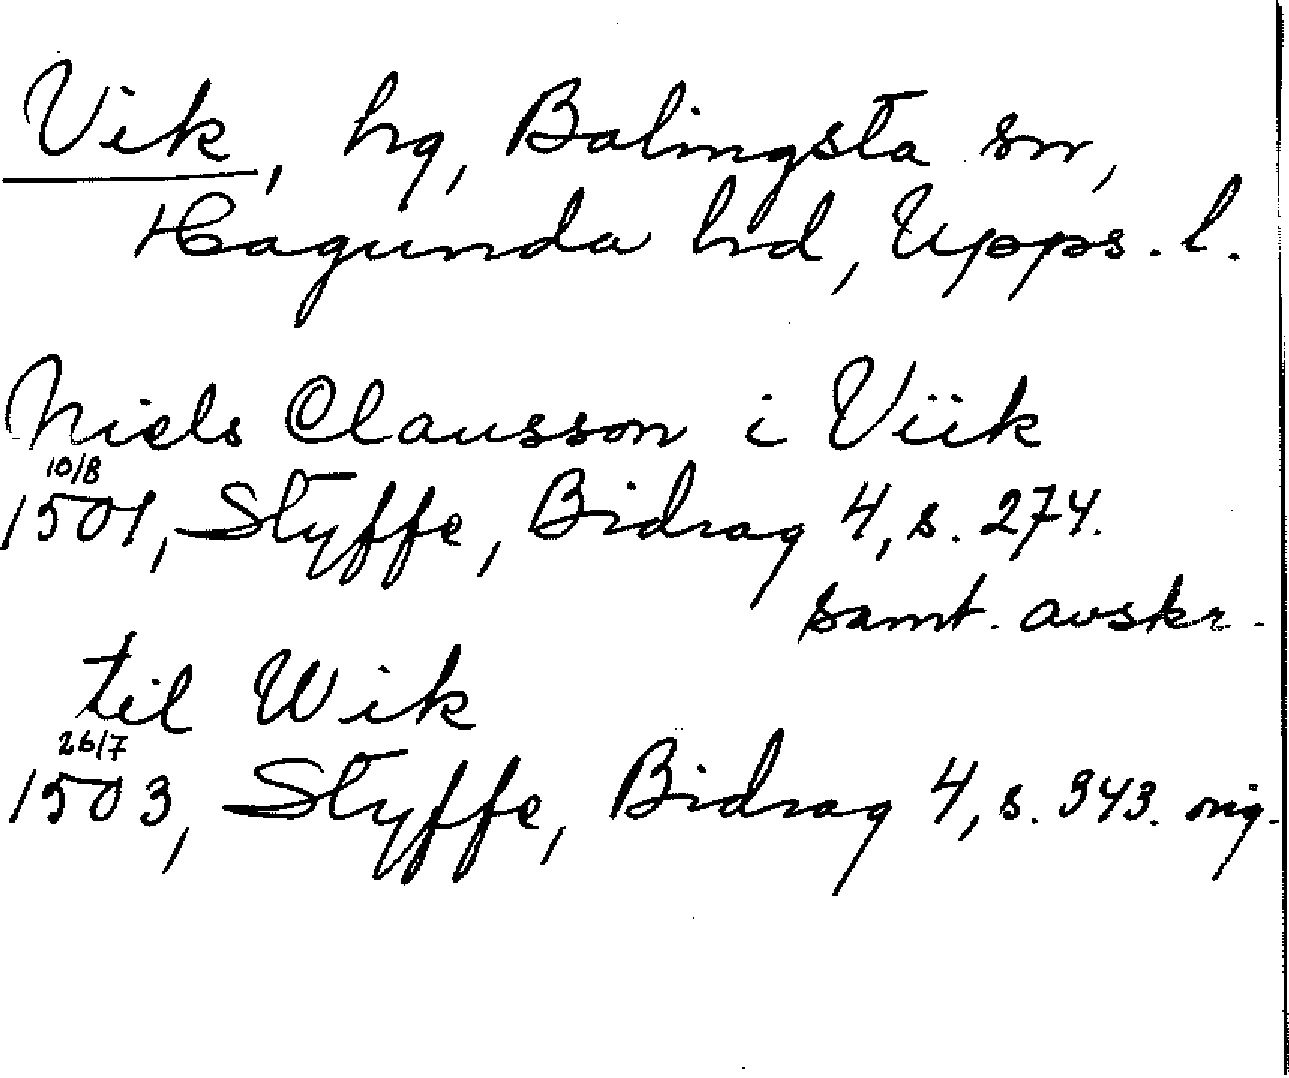 Vik, hg, Balingsta sn,
Hagunda hd, Upps. l.
Niels Clausson i Viik
10/8
1501, Styffe, Bidrag 4, s. 274.
samt. avskr.
til Wik
26/7
1503, Styffe, Bidrag 4, s. 343. orig.